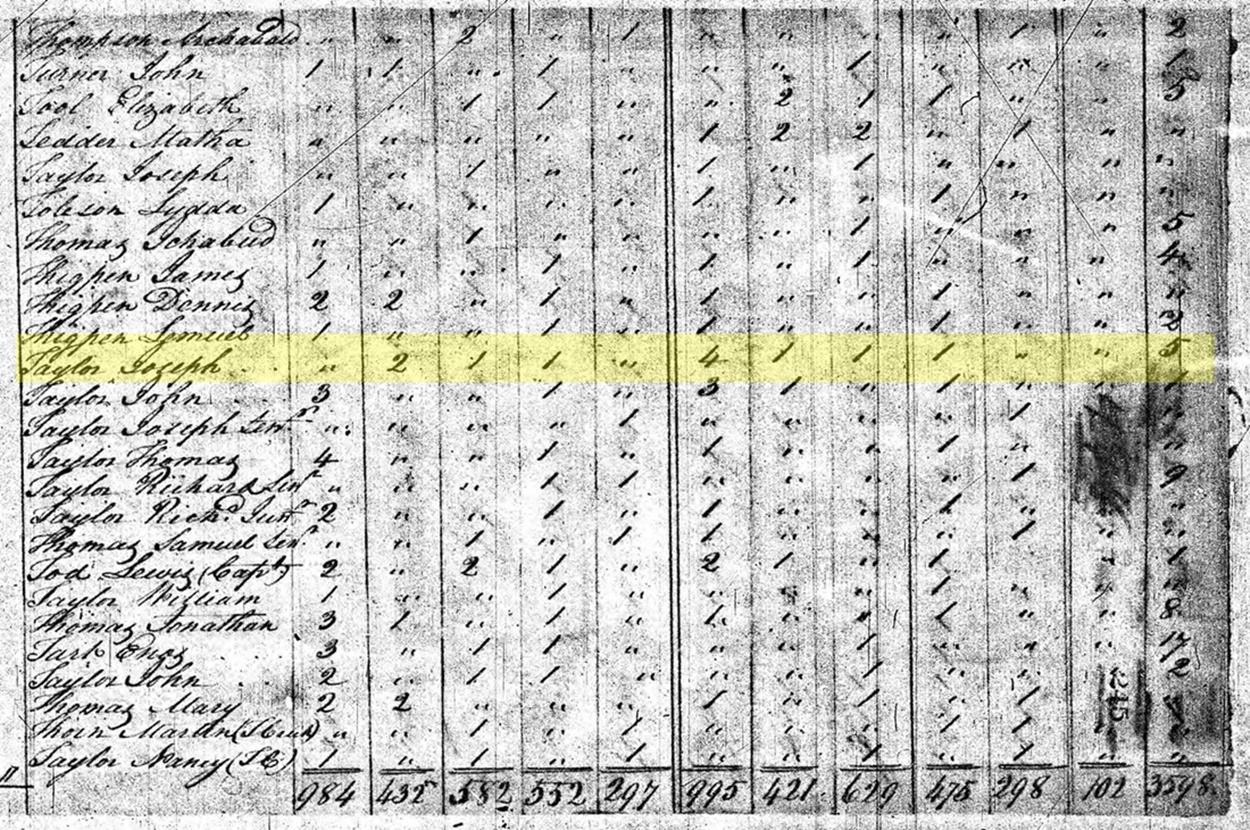 Thompson Archabald " " 2 " 1 " " " " 1 " 2
Turner John 1 1 " 1 " " " 1 " " " 1
Tool Elizabeth " " 1 1 " " 2 1 1 " " 5
Tedder Matha " " " " " 1 2 2 " 1 " "
Taylor Joseph " " 1 " " 1 " 1 " " " "
Lydda 1 " " " " 1 " " 1 " " "
Thomas Ichabud " " 1 " " " " 1 " " " 5
Thigpen James 1 " " 1 " 1 " 1 " " " 4
Thigpen Dennis 2 2 " 1 " 1 " " 1 " " "
Thigpen Lemuel 1 " " 1 " 1 " " 1 " " 2
Taylor Joseph " 2 1 1 " 4 1 1 1 " " 5
Taylor John 3 " " 1 " 3 1 " 1 " " 1
Taylor Joseph Senr " " " " 1 " " " " 1 "
Taylor Thomas 4 " " 1 " 1 " " 1 " "
Taylor Richard Senr " " " 1 1 1 " " 1 1 9
Taylor Richd Junr 2 " " 1 " 1 " " 1 " " "
Thomas Samuel Senr " " 1 " 1 1 " " 1 1 " "
Tod Lewis (Capt) 2 " 2 1 " 2 1 " 1 " " 1
Taylor William 1 " " 1 " " " " 1 " " "
Thomas Jonathan 3 1 " 1 " 1 " " 1 " " 8
Tart Enos 3 " 1 1 " " " 1 " " " 17
Taylor John 2 " 1 1 " " " 1 " " " 2
Thomas Mary 2 2 " " " 1 " 1 " 1 "
Thorn Martin " " 1 " 1 1 " " 1 " "
Taylor Nancy 1 " 1 " 1 " " 1 " 1 " "
984 432 582 552 297 995 421 629 475 298 102 3598
245